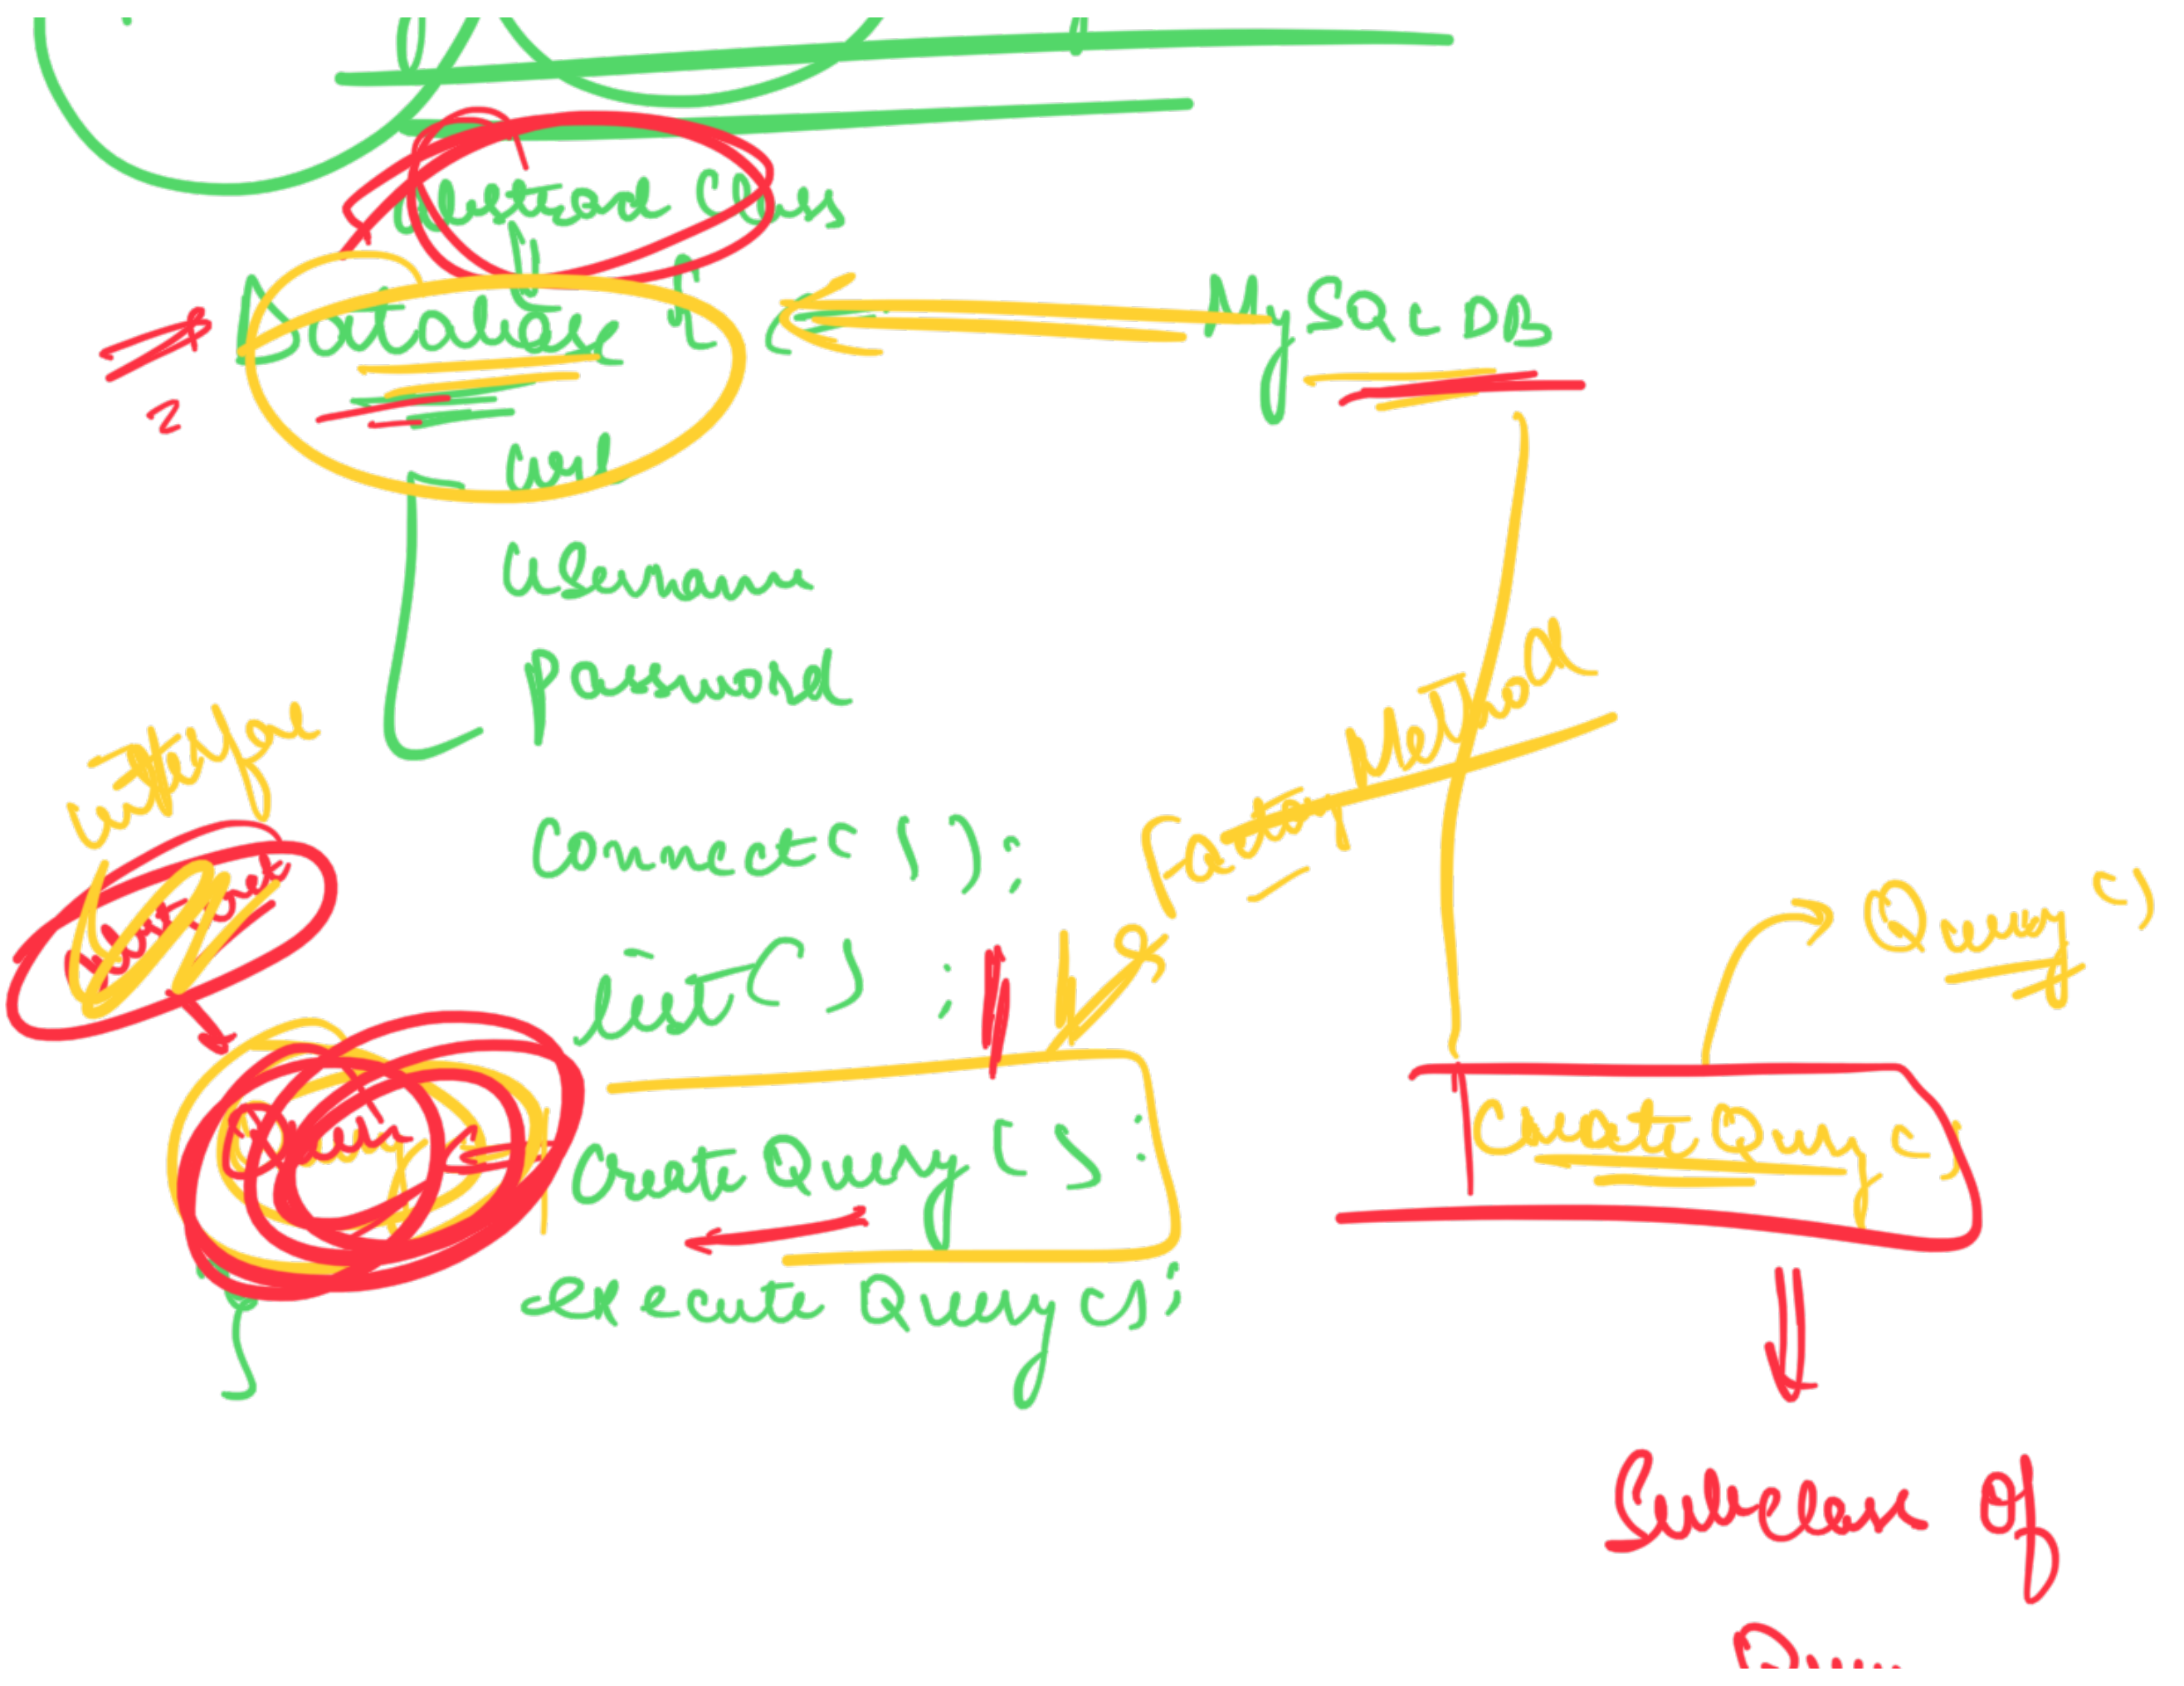 Abstract Class
Database {
MySQL DB
url
Username
password
interface
Connect ( ) ;
Factory Method
Query ()
init ( ) ;
Create Query ( ) ;
Create Query ()
execute Query () ;
}
Subclass of